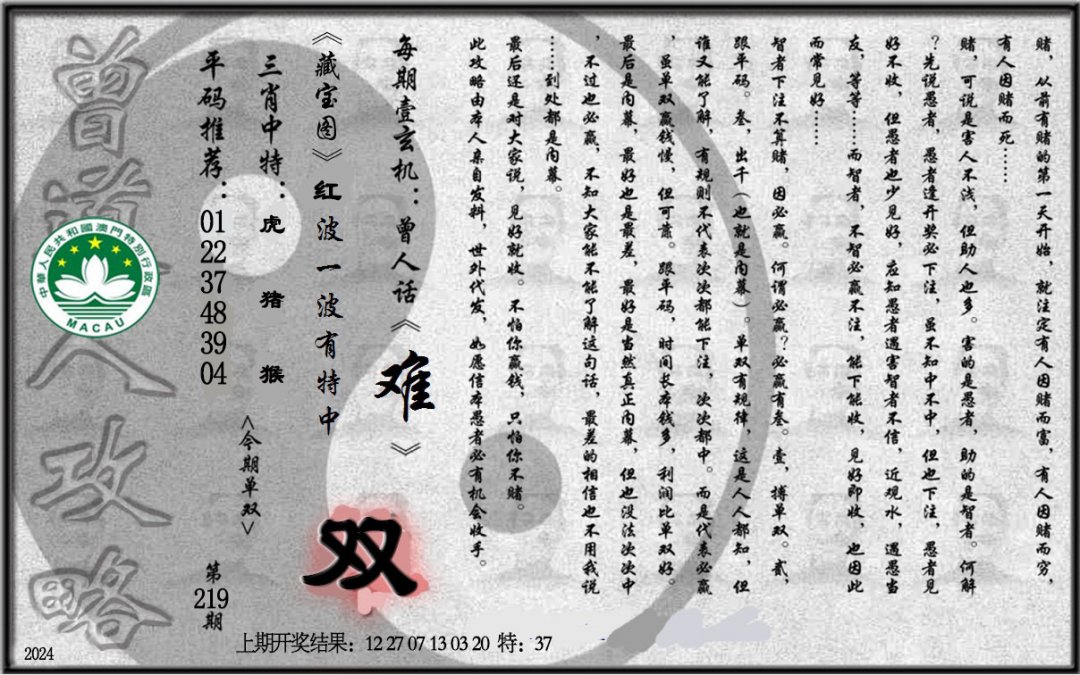 赌，从前有赌的第一天开始，就注定有人因赌而富，有人因赌而穷，
有人因赌而死……
赌，可说是害人不浅，但助人也多。害的是愚者，助的是智者。何解
？先说愚者，愚者逢开奖必下注，虽不知中不中，但也下注，愚者见
好不收，但愚者也少见好，应知愚者遇害智者不信，近观水，遇愚当
友，等等……而智者，不智必赢不注，能下能收，见好即收，也因此
而常见好……
智者下注不算赌，因必赢。何谓必赢？必赢有叁。壹，搏单双。贰，
跟平码。叁，出千（也就是内幕）。单双有规律，这是人人都知，但
谁又能了解，有规则不代表次次都能下注，次次都中。而是代表必赢
，虽单双赢钱慢，但可靠。跟平码，时间长本钱多，利润比单双好。
最后是内幕，最好也是最差，最好是当然真正内幕，但也没法次次中
，不过也必赢，不知大家能不能了解这句话，最差的相信也不用我说
……到处都是内幕。
最后还是对大家说，见好就收。不怕你赢钱，只怕你不赌。
此攻略由本人亲自发料，世外代发，如愿信本愚者必有机会收手。
每期壹玄机：曾人话《难》
《藏宝图》红波一波有特中
双
三肖中特：虎 猪 猴
<今期单双>
平码推荐：01 22 37 48 39 04
第219期
曾道人攻略
中華人民共和國澳門特別行政區
MACAU
上期开奖结果：12 27 07 13 03 20 特：37
2024